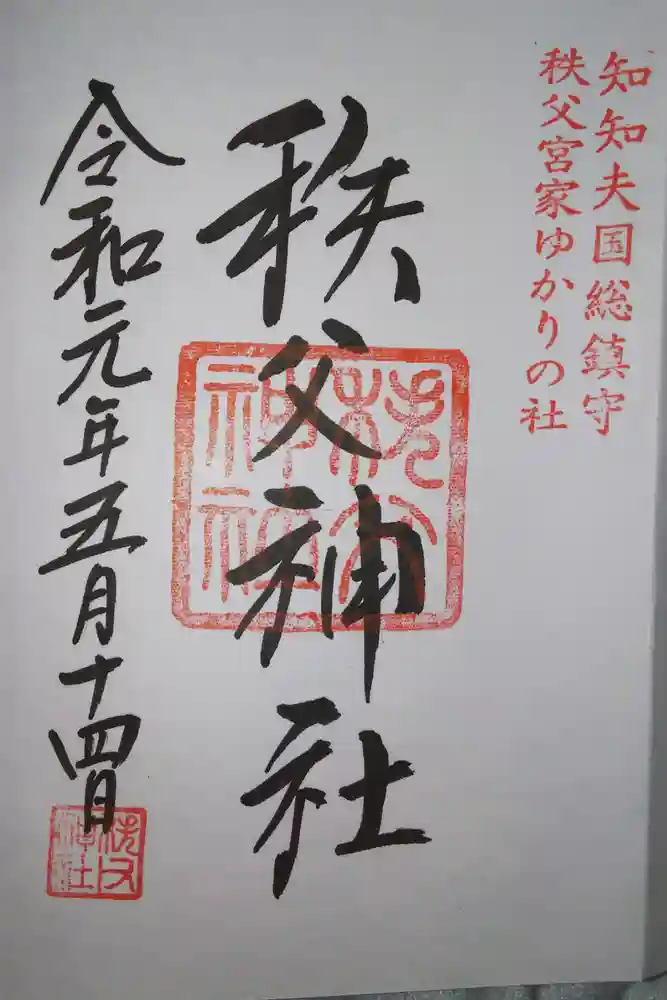 知知夫国総鎮守
秩父宮家ゆかりの社
秩父神社
秩父神社
令和元年五月十四日
秩父神社